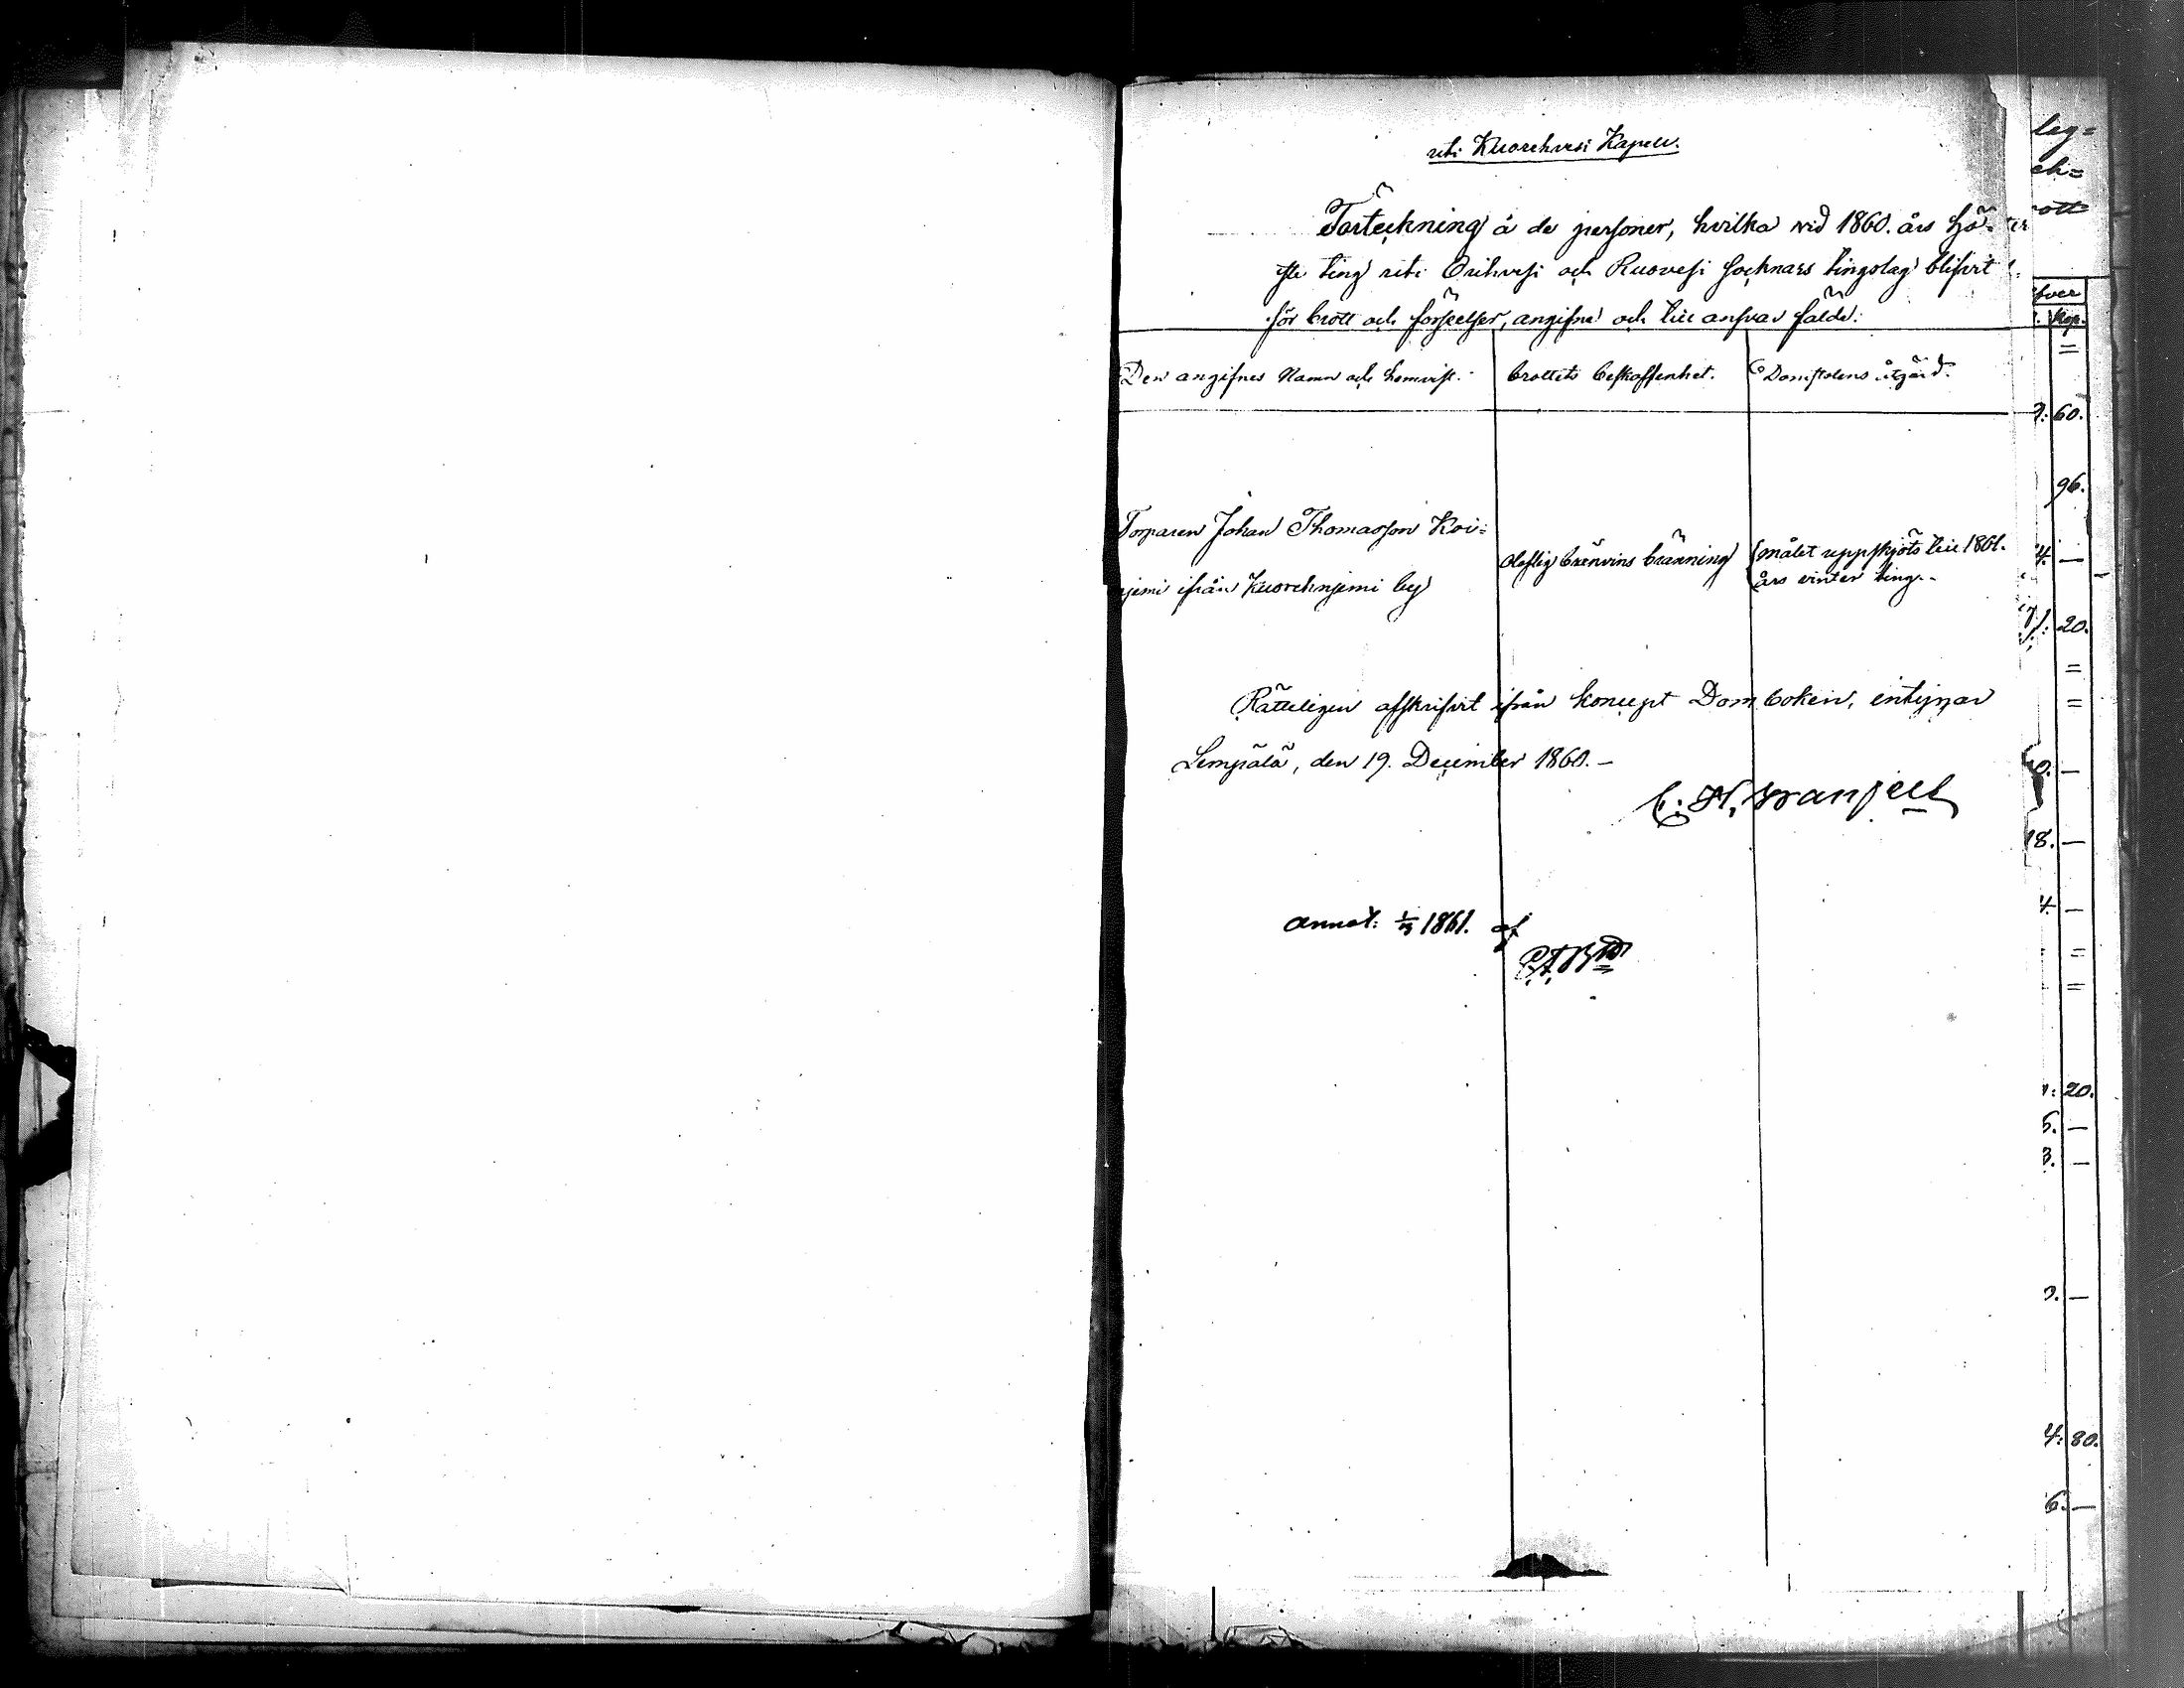 uti Kuorehvesi Kapell.
Förteckning å de personer, hvilka vid 1860. års hö=
ste ting uti Orihvesi och Ruovesi socknars tingslag blifvit
för brott och förseelser, angifne och till ansvar fälde.
Den angifnes Namn och hemvist. Brottets beskaffenhet. Domstolens åtgärd.
Torparen Johan Thomasson Koi=
njemi ifrån Kuorehnjemi by
Olaflig bränvins bränning
målet uppskjöts till 1861.
års vinter ting.
Rätteligen afskrifvit ifrån koncept Domboken, intygar
Lempälä, den 19. December 1860.
annot: 1/3 1861. af
leg=
ch=
ott
fver
Kop.
=
60.
96.
4. —
20.
=
=
0. —
18. —
4. —
=
=
20.
5. —
3. —
—
4: 80.
6. —